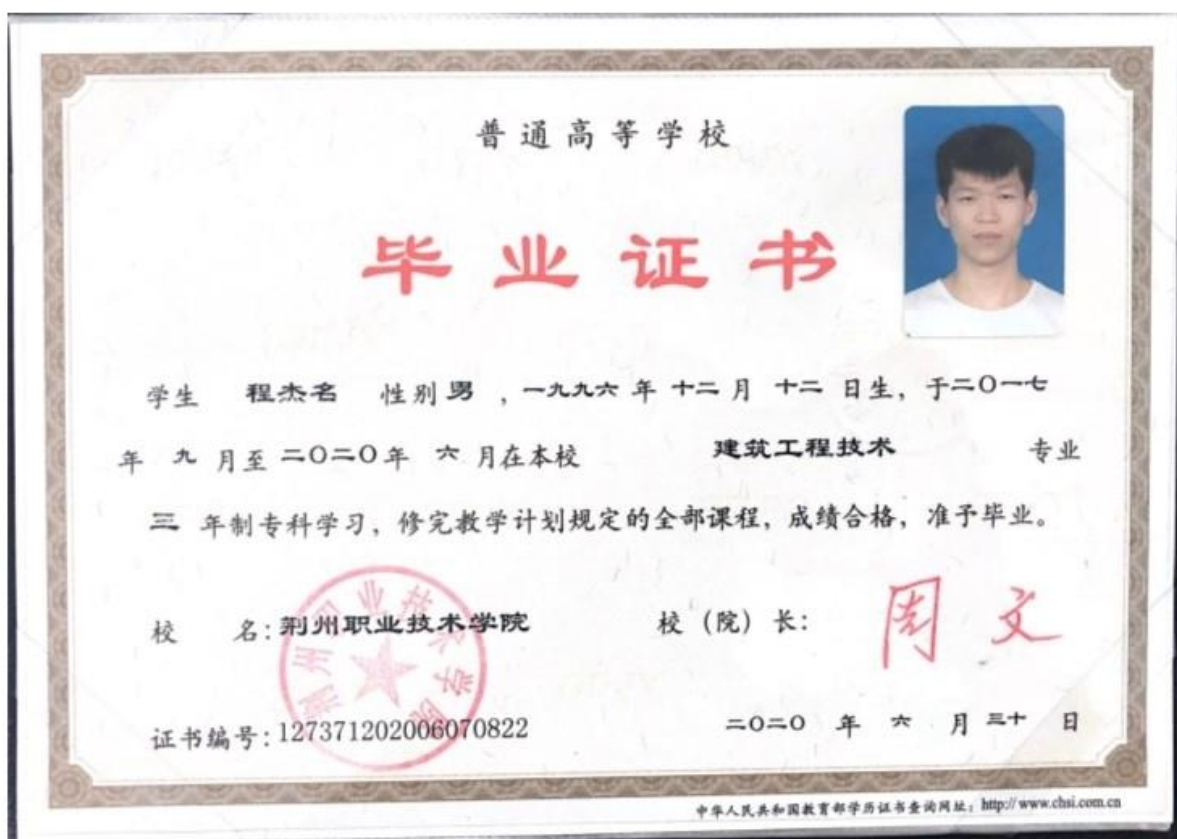 普通高等学校
毕业证书
学生 程杰名 性别 男 ，一九九六 年 十二 月 十二 日生，于二〇一七
年 九 月至 二〇二〇年 六 月在本校 建筑工程技术 专业
三 年制专科学习，修完教学计划规定的全部课程，成绩合格，准予毕业。
校 名：荆州职业技术学院 校（院）长：周文
荆州职业技术学院
证书编号：127371202006070822 二〇二〇 年 六 月 三十 日
中华人民共和国教育部学历证书查询网址：http://www.chsi.com.cn